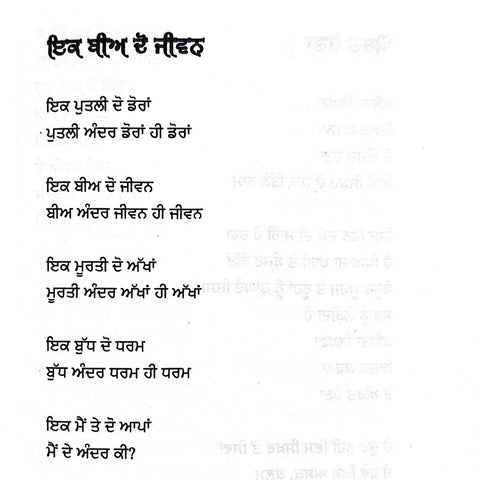 ਇਕ ਬੀਅ ਦੋ ਜੀਵਨ
ਇਕ ਪੁਤਲੀ ਦੋ ਡੋਰਾਂ
ਪੁਤਲੀ ਅੰਦਰ ਡੋਰਾਂ ਹੀ ਡੋਰਾਂ
ਇਕ ਬੀਅ ਦੋ ਜੀਵਨ
ਬੀਅ ਅੰਦਰ ਜੀਵਨ ਹੀ ਜੀਵਨ
ਇਕ ਮੂਰਤੀ ਦੋ ਅੱਖਾਂ
ਮੂਰਤੀ ਅੰਦਰ ਅੱਖਾਂ ਹੀ ਅੱਖਾਂ
ਇਕ ਬੁੱਧ ਦੋ ਧਰਮ
ਬੁੱਧ ਅੰਦਰ ਧਰਮ ਹੀ ਧਰਮ
ਇਕ ਮੈਂ ਤੇ ਦੋ ਆਪਾਂ
ਮੈਂ ਦੇ ਅੰਦਰ ਕੀ?